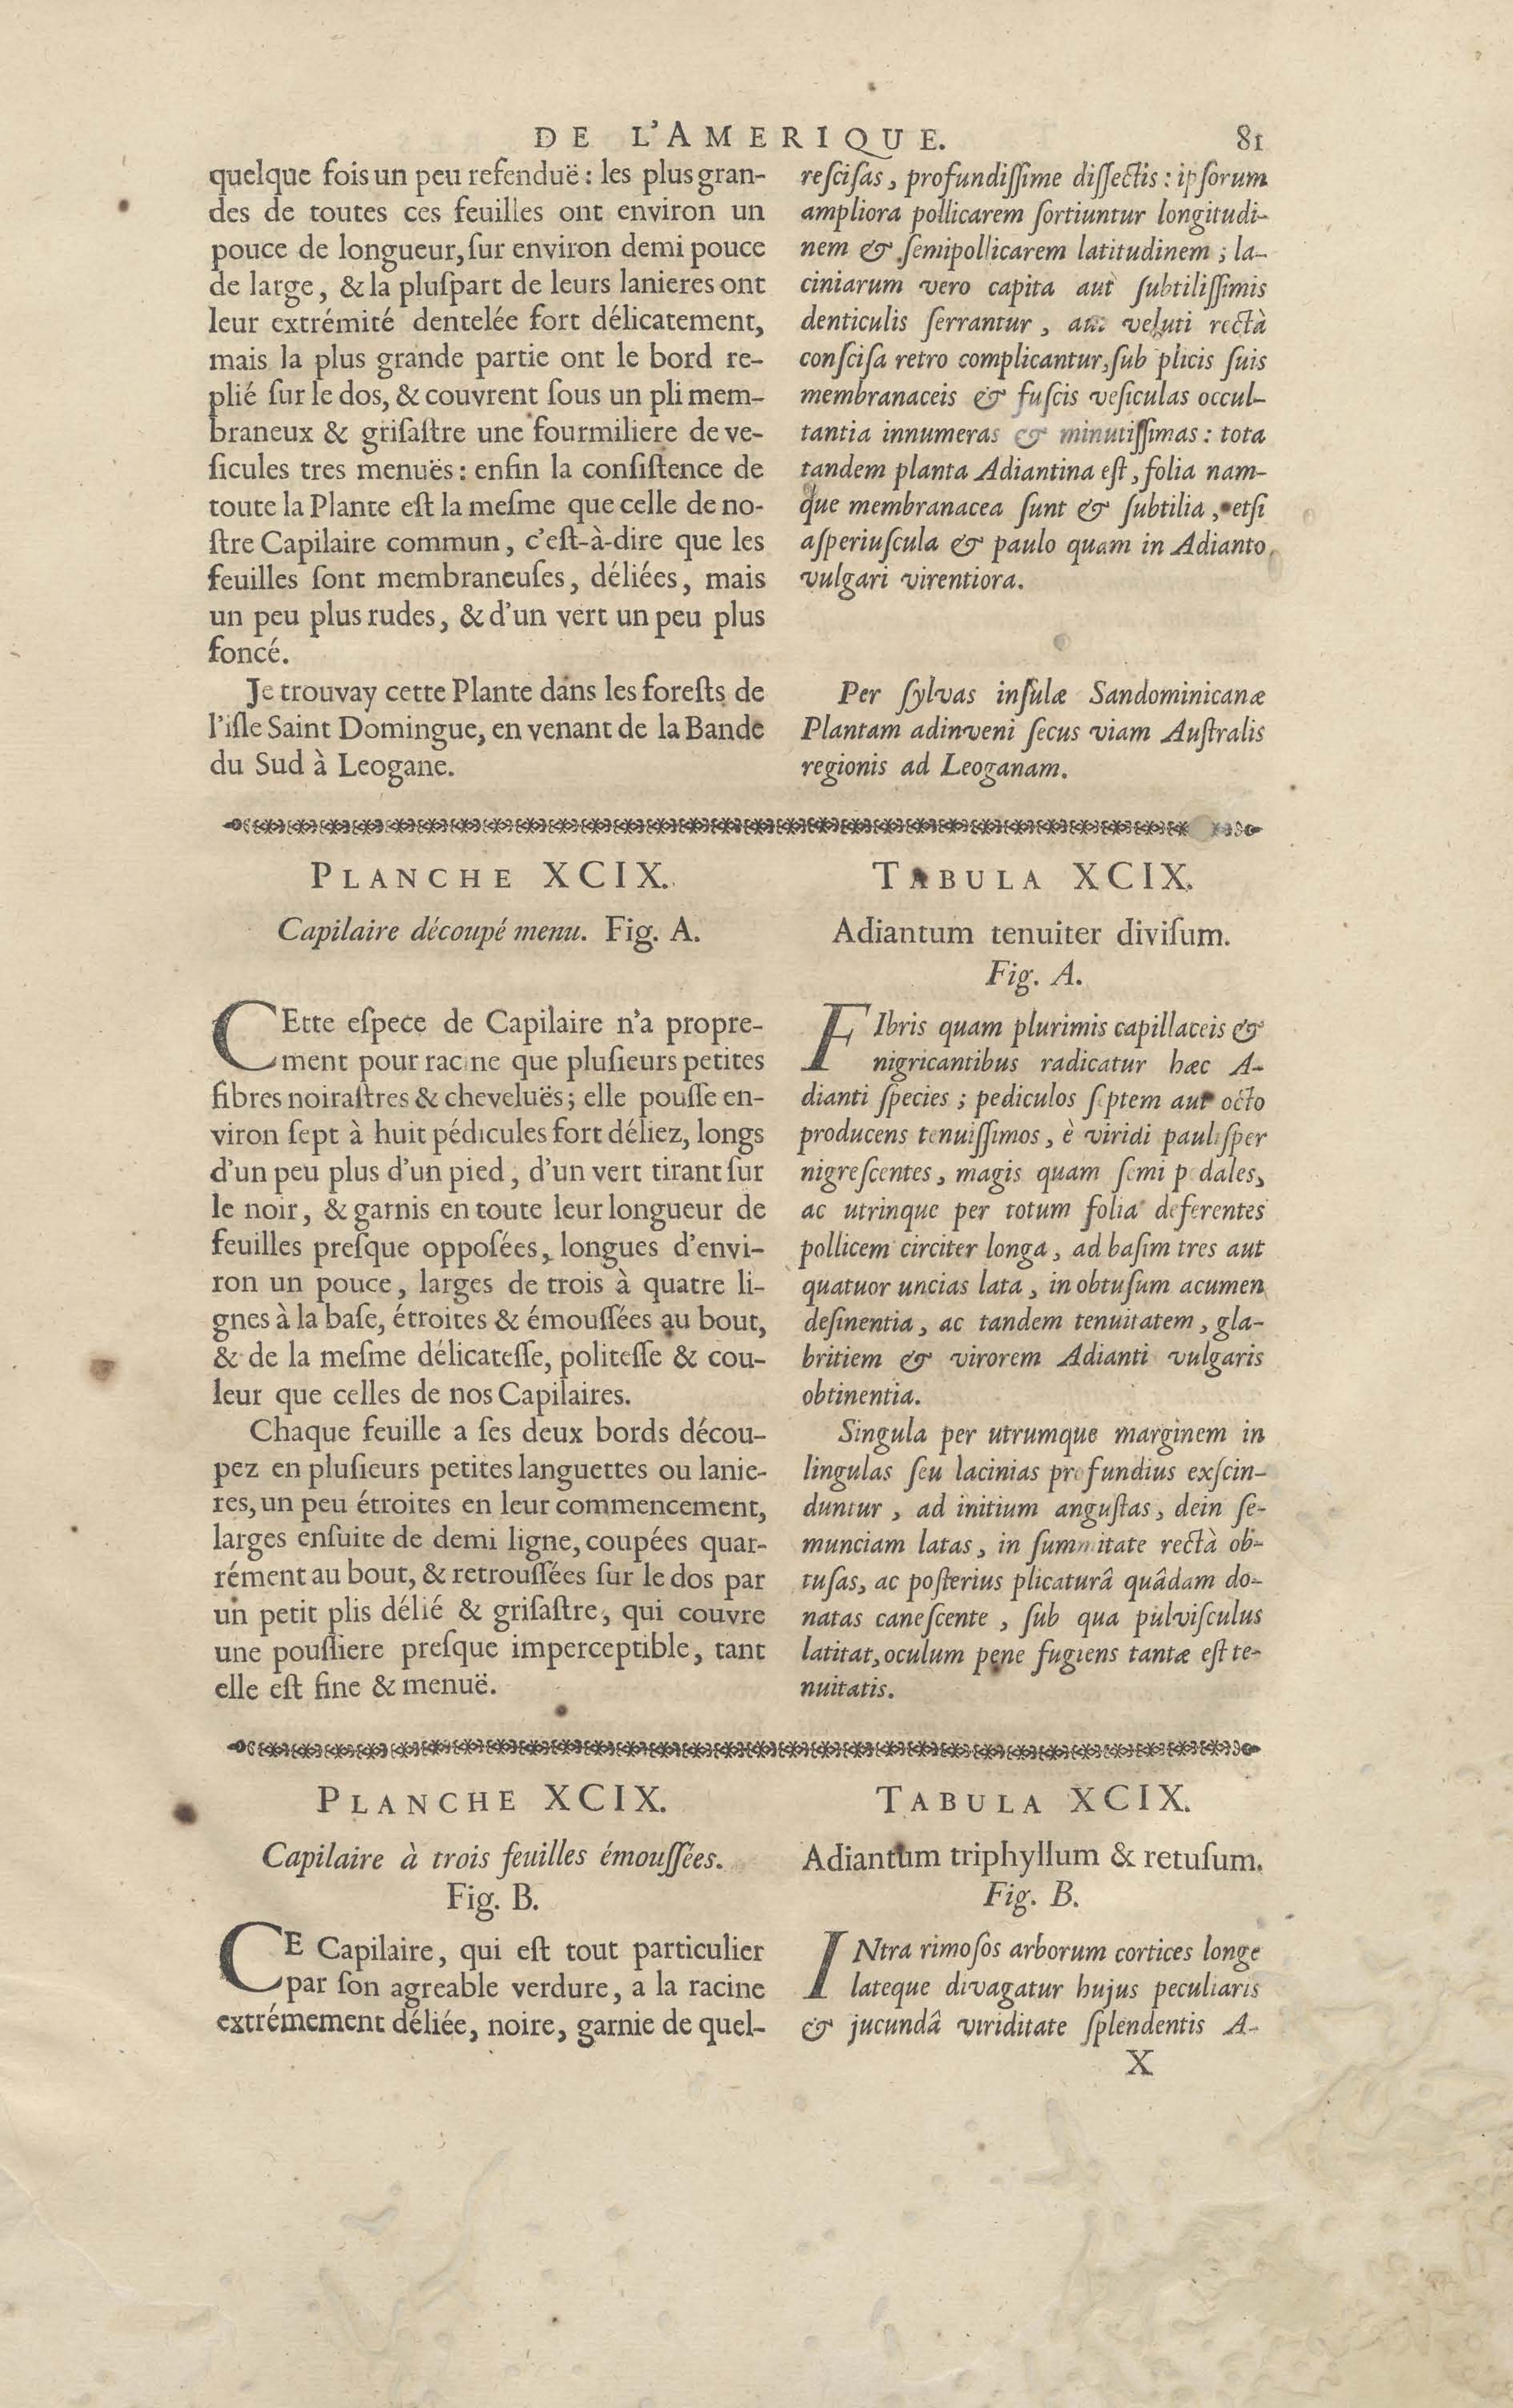 DE L'AMERIQUE. 81
quelque fois un peu refenduë : les plus gran-
des de toutes ces feuilles ont environ un
pouce de longueur, ſur environ demi pouce
de large, & la pluſpart de leurs lanieres ont
leur extrémité dentelée fort délicatement,
mais la plus grande partie ont le bord re-
plié ſur le dos, & couvrent ſous un pli mem-
braneux & griſaſtre une fourmiliere de ve-
ſicules tres menuës : enfin la conſiſtence de
toute la Plante eſt la meſme que celle de no-
ſtre Capilaire commun, c'eſt-à-dire que les
feuilles ſont membraneuſes, déliées, mais
un peu plus rudes, & d'un vert un peu plus
foncé.
Je trouvay cette Plante dans les foreſts de
l'iſle Saint Domingue, en venant de la Bande
du Sud à Leogane.
reſciſas, profundiſſime diſſectis : ipſorum
ampliora pollicarem ſortiuntur longitudi-
nem & ſemipollicarem latitudinem ; la-
ciniarum vero capita aut ſubtiliſſimis
denticulis ſerrantur, aut veluti rectà
conſciſa retro complicantur, ſub plicis ſuis
membranaceis & fuſcis veſiculas occul-
tantia innumeras & minutiſſimas : tota
tandem planta Adiantina eſt, folia nam-
que membranacea ſunt & ſubtilia, etſi
aſperiuſcula & paulo quam in Adianto
vulgari virentiora.
Per ſylvas inſulæ Sandominicanæ
Plantam adinveni ſecus viam Auſtralis
regionis ad Leoganam.
PLANCHE XCIX.
Capilaire découpé menu. Fig. A.
CEtte eſpece de Capilaire n'a propre-
ment pour racine que pluſieurs petites
fibres noiraſtres & cheveluës ; elle pouſſe en-
viron ſept à huit pédicules fort déliez, longs
d'un peu plus d'un pied, d'un vert tirant ſur
le noir, & garnis en toute leur longueur de
feuilles preſque oppoſées, longues d'envi-
ron un pouce, larges de trois à quatre li-
gnes à la baſe, étroites & émouſſées au bout,
& de la meſme délicateſſe, politeſſe & cou-
leur que celles de nos Capilaires.
Chaque feuille a ſes deux bords décou-
pez en pluſieurs petites languettes ou lanie-
res, un peu étroites en leur commencement,
larges enſuite de demi ligne, coupées quar-
rément au bout, & retrouſſées ſur le dos par
un petit plis délié & griſaſtre, qui couvre
une pouſſiere preſque imperceptible, tant
elle eſt fine & menuë.
TABULA XCIX.
Adiantum tenuiter diviſum.
Fig. A.
FIbris quam plurimis capillaceis &
nigricantibus radicatur hæc A-
dianti ſpecies ; pediculos ſeptem aut octo
producens tenuiſſimos, è viridi pauliſper
nigreſcentes, magis quam ſemi pedales,
ac utrinque per totum folia deferentes
pollicem circiter longa, ad baſim tres aut
quatuor uncias lata, in obtuſum acumen
deſinentia, ac tandem tenuitatem, gla-
britiem & virorem Adianti vulgaris
obtinentia.
Singula per utrumque marginem in
lingulas ſeu lacinias profundius exſcin-
duntur, ad initium anguſtas, dein ſe-
munciam latas, in ſummitate rectà ob-
tuſas, ac poſterius plicaturâ quâdam do-
natas caneſcente, ſub qua pulviſculus
latitat, oculum pene fugiens tantæ eſt te-
nuitatis.
PLANCHE XCIX.
Capilaire à trois feuilles émouſſées.
Fig. B.
CE Capilaire, qui eſt tout particulier
par ſon agreable verdure, a la racine
extrémement déliée, noire, garnie de quel-
TABULA XCIX.
Adiantum triphyllum & retuſum.
Fig. B.
INtra rimoſos arborum cortices longe
lateque divagatur hujus peculiaris
& jucundâ viriditate ſplendentis A-
X